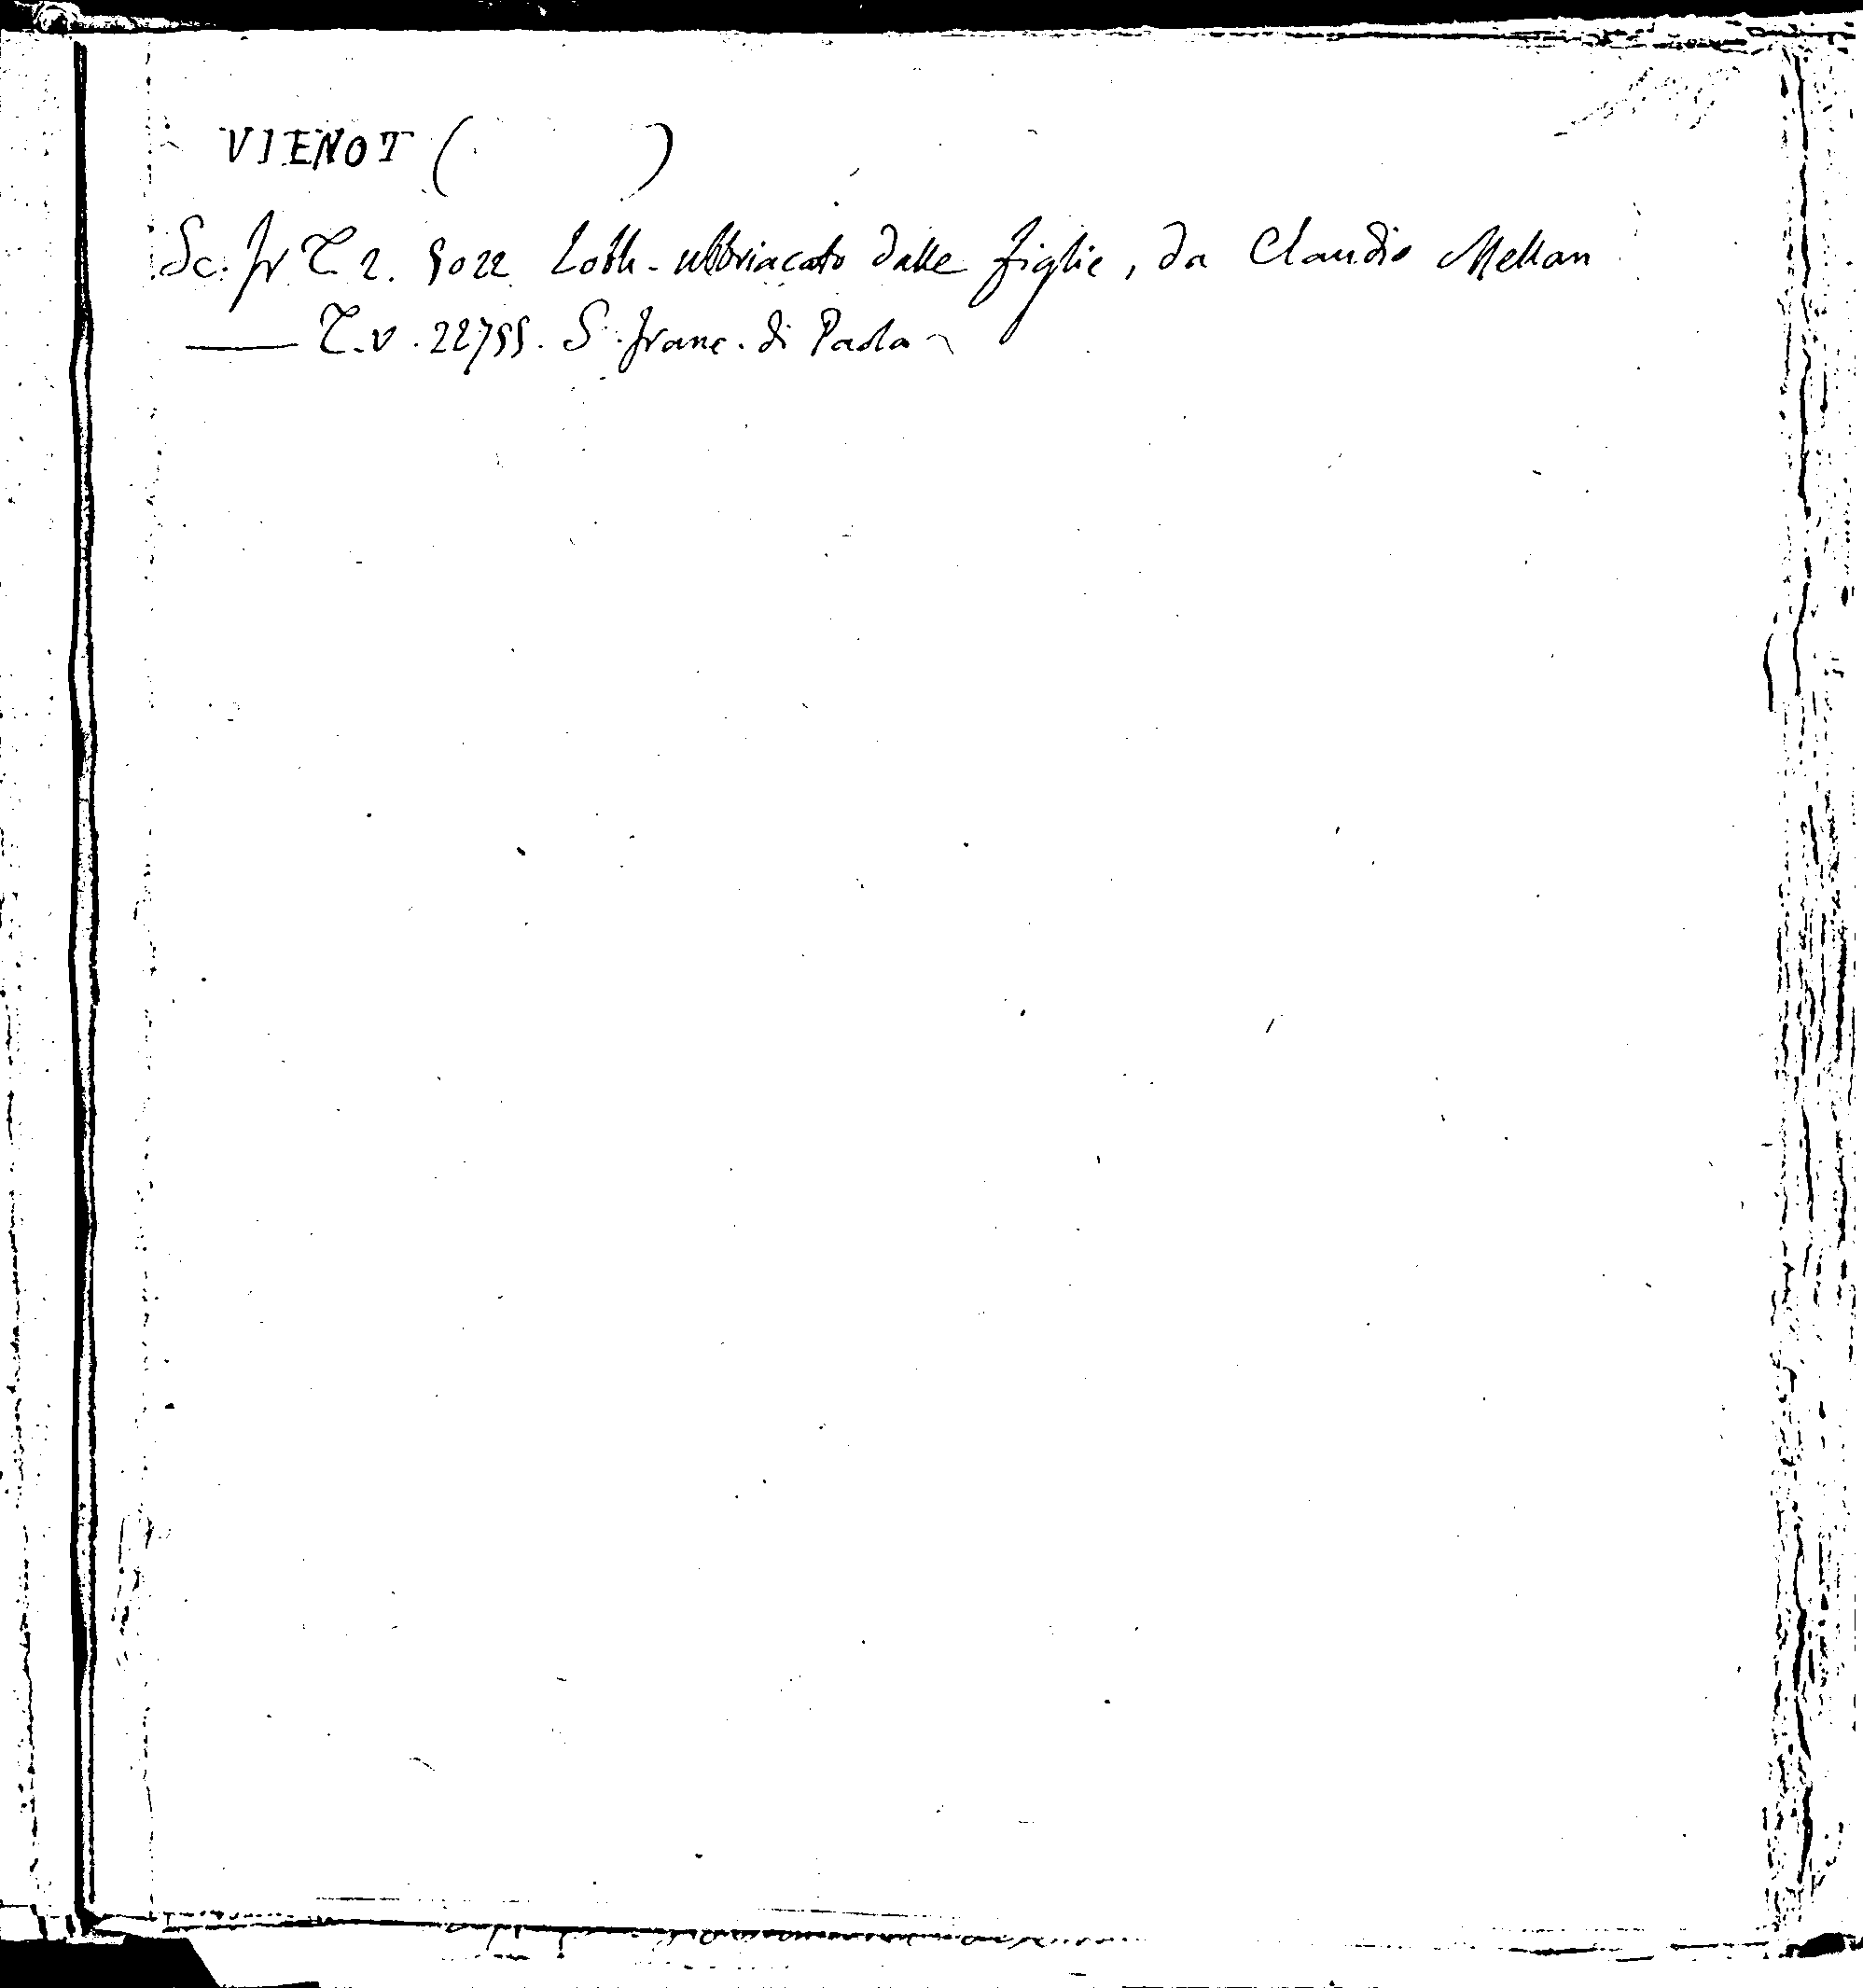 VIENOT ( )
Sc. Fr T. 2. 5022 Loth ubbriacato dalle figlie, da Claudio Mellan
— T. v. 22755. S. Franc. di Paola